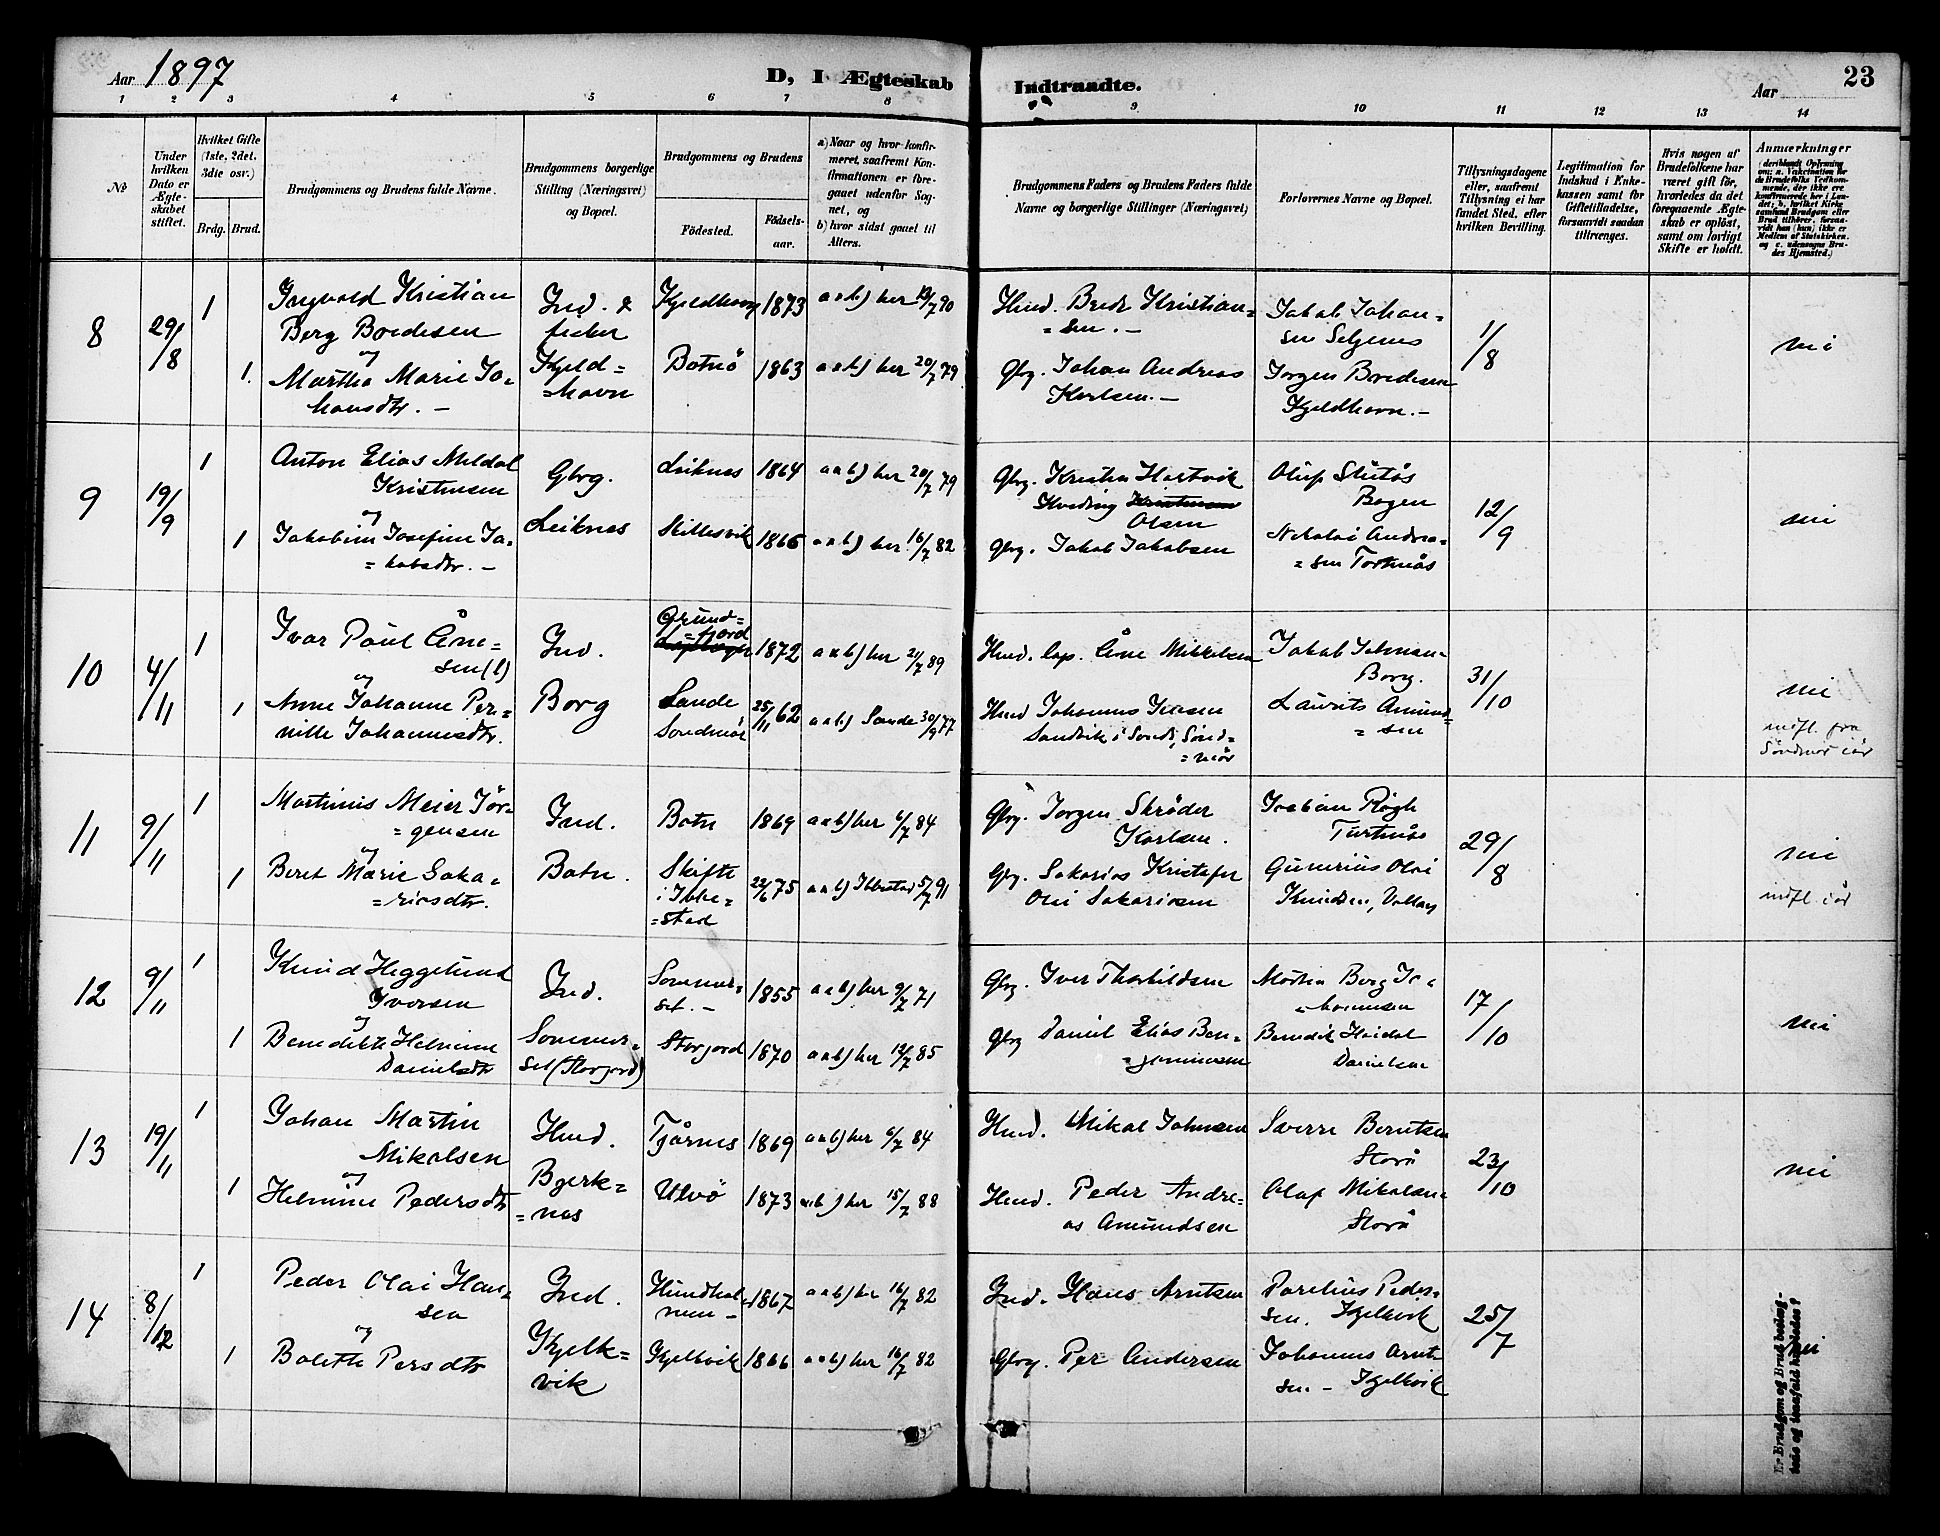 Aar 1897 D, I Ægteskab Indtraadte. Aar 23
1 2 3 4 5 6 7 8 9 10 11 12 13 14
№
Under hvilken Dato er Ægteskabet stiftet.
Hvilket Gifte (1ste, 2det, 3die osv.)
Brdg. Brud.
Brudgommens og Brudens fulde Navne.
Brudgommens borgerlige Stilling (Næringsvei) og Bopæl.
Brudgommens og Brudens
Fødested. Fødselsaar.
a) Naar og hvor konfirmeret, saafremt Konfirmationen er foregaaet udenfor Sognet, og
b) hvor sidst gaaet til Alters.
Brudgommens Faders og Brudens Faders fulde Navne og borgerlige Stillinger (Næringsvei)
Forlovernes Navne og Bopæl.
Tillysningsdagene eller, saafremt Tillysning ei har fundet Sted, efter hvilken Bevilling.
Legitimation for Indskud i Enkekassen samt for Giftetilladelse, forsaavidt saadan tiltrænges.
Hvis nogen af Brudefolkene har været gift før, hvorledes da det foregaaende Ægteskab er opløst, samt om lovligt Skifte er holdt.
Anmærkninger
8 29/8 1 Ingvald Kristian Berg Bredesen
og
1. Martha Marie Johansdtr. –
Ind. & fisker Kjeldhavn
Kjeldhavn 1873 a & b) her 13/7 90
Botnö 1863 a & b) her 20/7 79
Husd. Brede Kristiansen. –
Gbrg. Johan Andreas Karlsen. –
Jakob Johansen Seljenes
Jørgen Bredesen Kjeldhavn. –
1/8
nei
9 19/9 1 Anton Elias Meldal Kristensen
og
1 Jakobine Josefine Jakobsdtr. –
Gbrg. Leiknes
Leiknes 1864 a & b) her 20/7 79
Skillesvik 1866 a & b) her 16/7 82
Gbrg. Kristen Hartvik Kveding Olsen
Gbrg. Jakob Jakobsen
Oluf Slutås Bogen
Nikolai Andreasen Tortenås
12/9
nei
10 4/11 1 Ivar Paul Ånesen (l)
og
1 Anne Johanne Pernille Johannesdtr.
Ind. Borg
Grundfjord 1872 a & b) her 21/7 89
Sande Söndmör 25/11 62 a & b) Sande 30/9 77
Husd. Cap. Åne Mikkelsen
Husd Johannes Iversen Sandvik i Sande, Söndmör
Jakob Johnsen Borg.
Laurits Amundsen
31/10
nei
indfl. fra Söndmör iår
11 9/11 1 Martinus Meier Jörgensen
og
1 Beret Marie Sakariasdtr.
Ind. Botn.
Botn 1869 a & b) her 6/7 84
Skifte i Ibbestad 22/6 75 a & b) Ibbestad 5/7 91
Gbrg. Jorgen Skröder Karlsen.
Gbrg. Sakarias Kristofer Olai Sakariasen
Gunerius Olai Knudsen,
29/8
nei
indfl. iår
12 9/11 1 Knud Heggelund Iversen
og
1 Benedikte Helmine Danielsdtr
Ind. Sommerset (Storjord)
Sommerset. – 1855 a & b) her 9/7 71
Storjord 1870 a & b) her 12/7 85
Gbrg. Iver Thorkildsen
Gbrg Daniel Elias Benjaminsen
Morten Berg Johannesen
Benedik Heidal Danielsen
17/10
nei
13 19/11 1 Johan Martin Mikalsen
og
1 Helmine Pedersdtr
Husd. Bjerknes
Tjårnes 1869 a & b) her 6/7 84
Ulvö 1873 a & b) her 15/7 88
Husd. Mikal Johnsen
Husd. Peder Andreas Amundsen
Sverre Berntsen Storå
Olaf Mikalsen Storå
23/10
nei
14 8/12 1 Peder Olai Hansen
og
1 Bolette Persdtr
Ind. Kjelkvik
Hundholmen – 1867 a & b) her 16/7 82
Kjelkvik 1866 a & b) her 16/7 82
Ind. Hans Arntsen
Gbrg. Per Andersen
Parelius Pedersen. Kjelkvik
Johannes Arntsen – Kjelkvik
25/7
nei